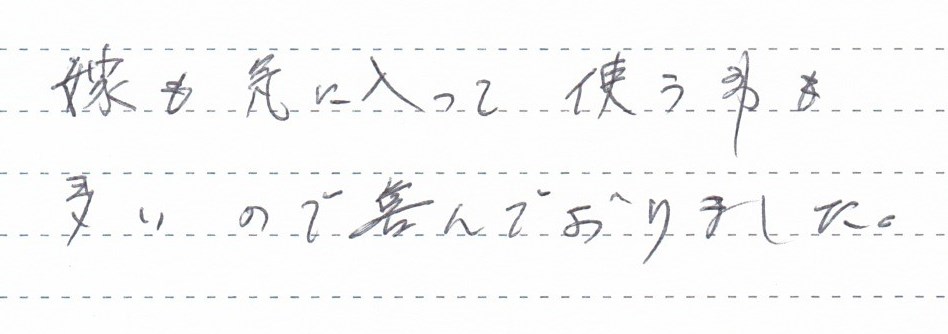 嫁も気に入って使う事も
多いので喜んでおりました。